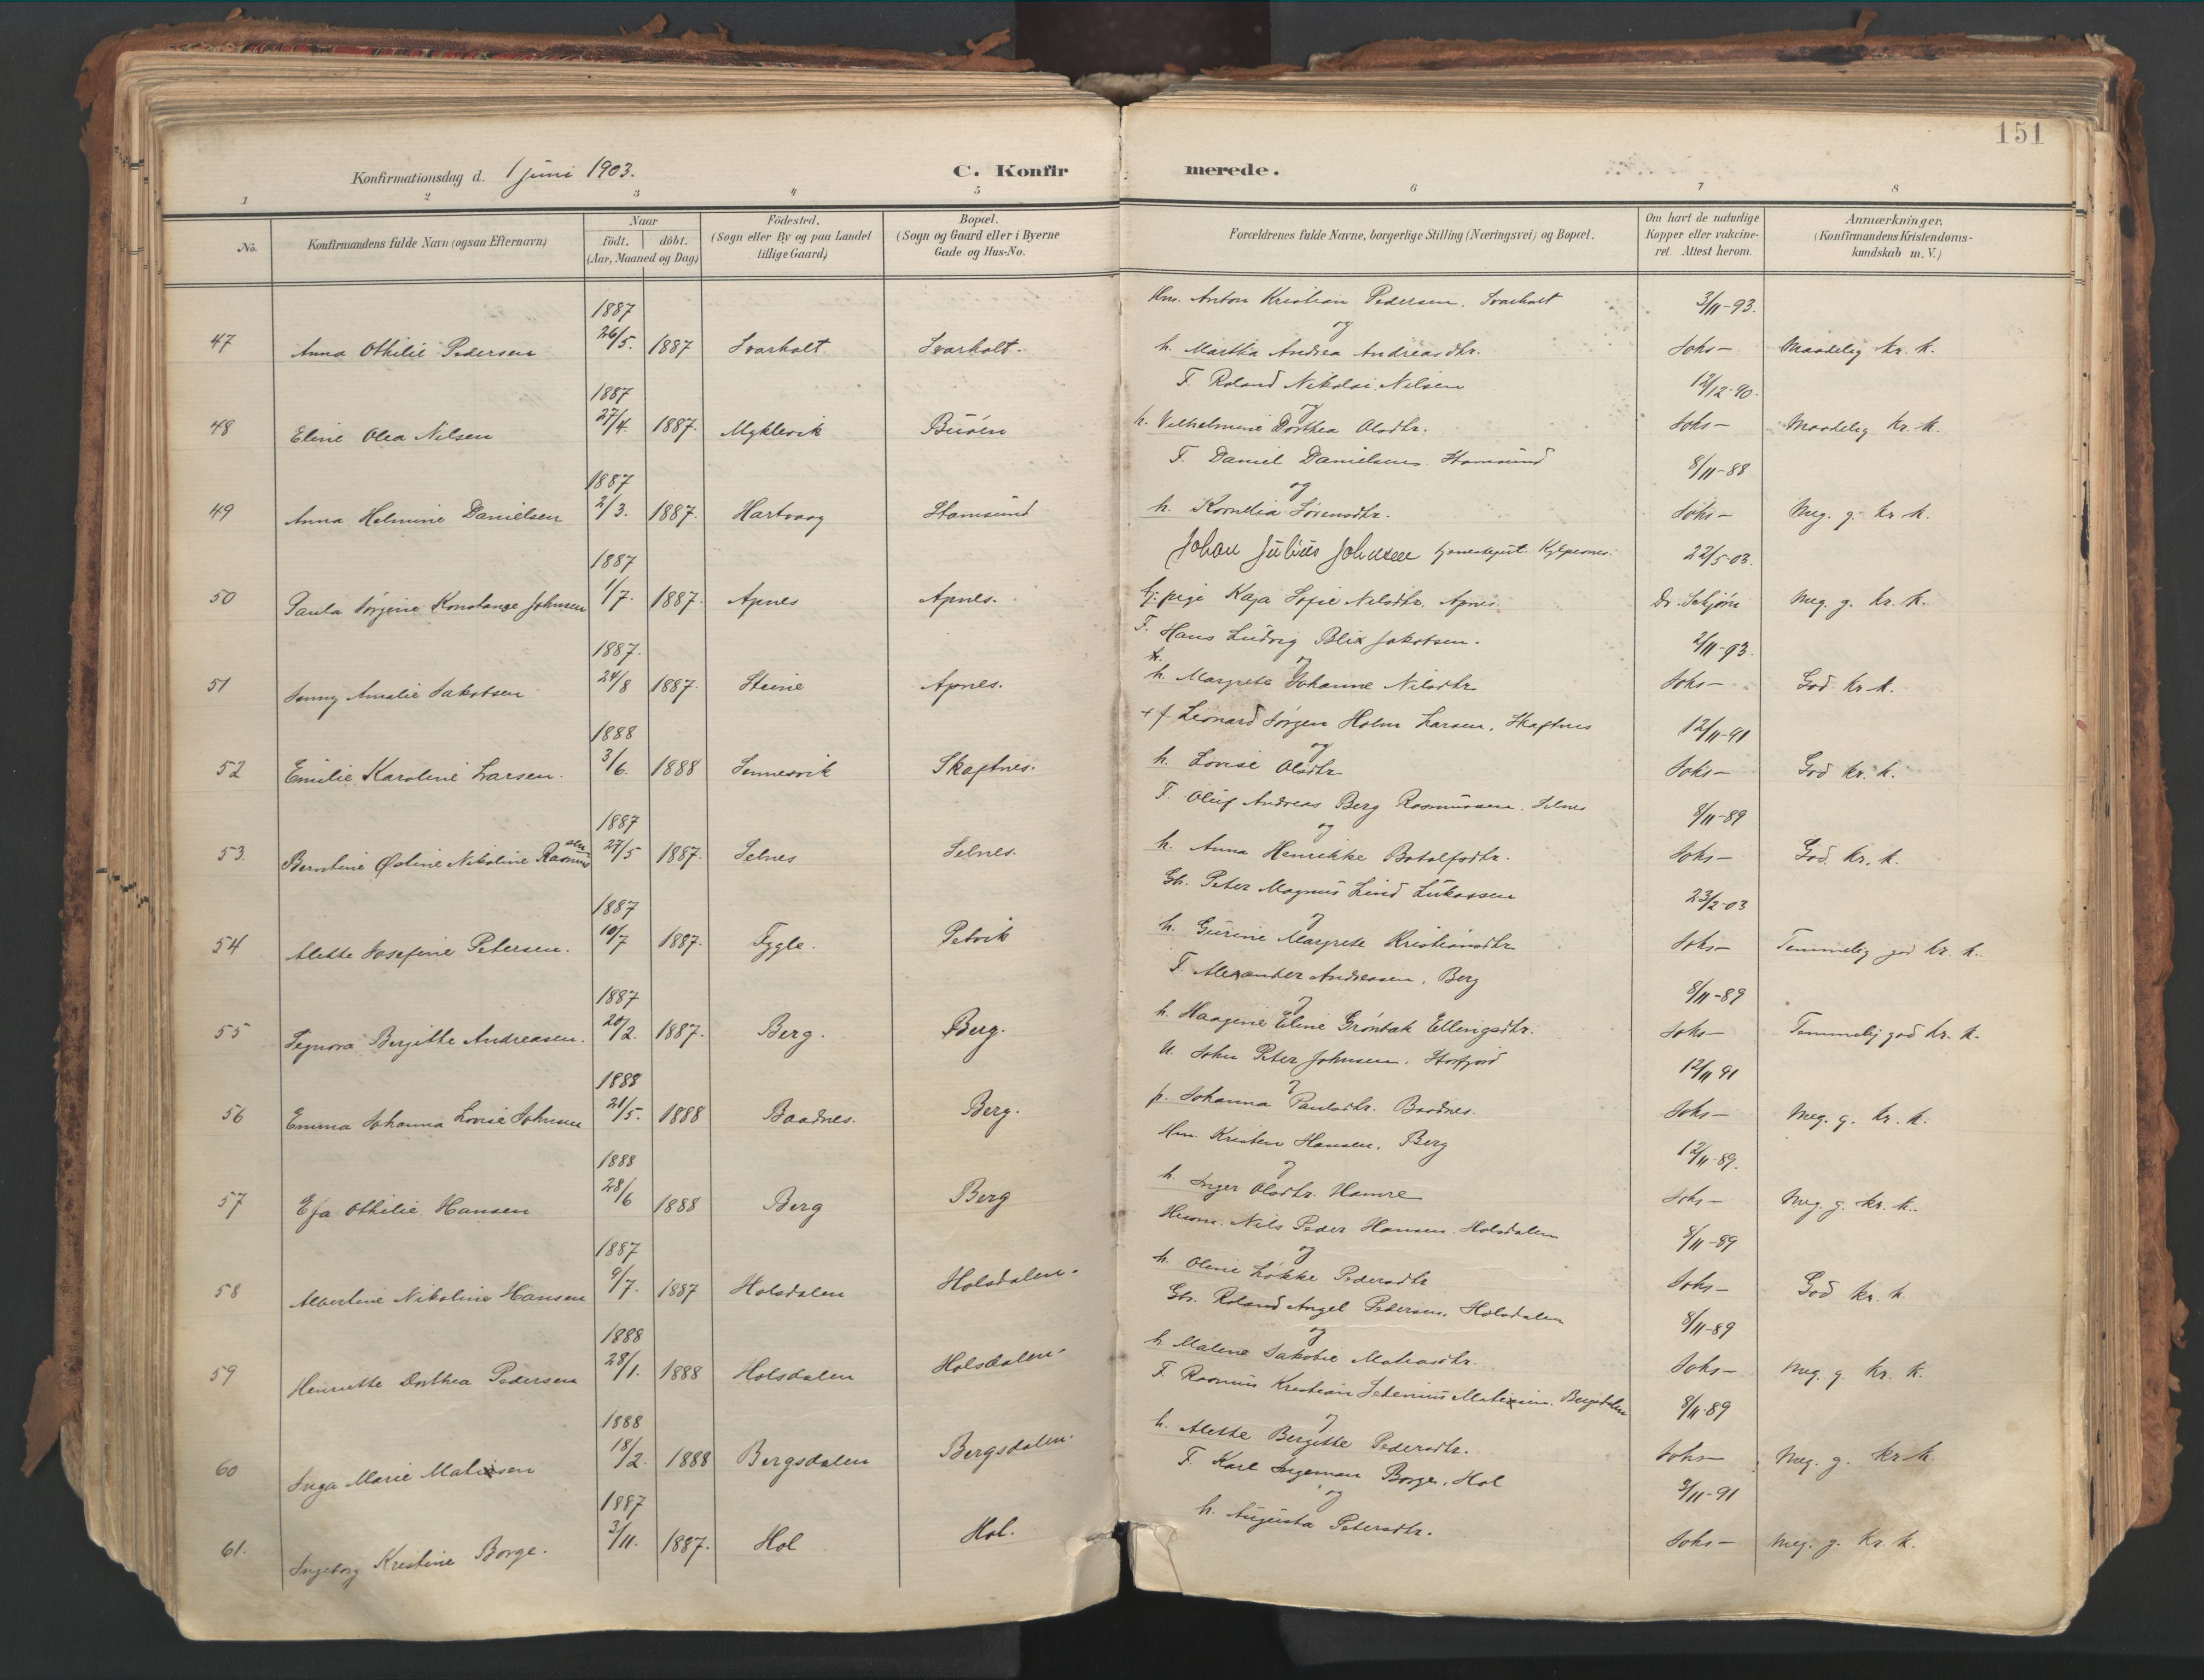 151
Konfirmationsdag d. 1 juni 1903.
C. Konfir merede.
1 2 3 4 5 6 7 8
No.
Konfirmandens fulde Navn (ogsaa Efternavn)
Naar
födt. döbt.
(Aar, Maaned og Dag)
Födested.
(Sogn eller By og paa Landet
tillige Gaard)
Bopæl.
(Sogn og Gaard eller i Byerne
Gade og Hus-No.
Forældrenes fulde Navne, borgerlige Stilling (Næringsvei) og Bopæl.
Om havt de naturlige
Kopper eller vakcine-
ret. Attest herom.
Anmærkninger.
(Konfirmandens Kristendoms-
kundskab m. V.)
1887 Hm. Anton Kristian Pedersen, Svarholt 3/11-93.
og
47 Anna Othilie Pedersen 26/5. 1887 Svarholt Svarholt. h. Martha Andrea Andreasdtr. Soks- Maadelig kr. k.
1887 F. Roland Nikolai Nilsen 12/12-90.
og
48 Eline Olea Nilsen 27/4. 1887. Myklevik h. Vilhelmine Dorthea Olsdtr. Soks- Maadelig kr. k.
1887 F. Daniel Danielsen Stamsund 8/11-88
og
49 Anna Helmine Danielsen 2/3. 1887. Hartvaag Stamsund h. Kornelia Sörensdtr. Soks- Meg. g. kr. k.
1887 Johan Julius Johnsen 22/5-03.
50 Paula Jørgine Konstanse Johnsen 1/7. 1887. Apnes Apnes. tj. pige Kaja Sofie Nilsdtr. Apnes. Dr. Meg. g. kr. k.
1887. F. Hans Ludvig Blix Jakobsen. 2/11-93.
og
51 Jenny Amalie Jakobsen 24/8 1887. Steine Apnes. h. Margrete Johanne Nilsdtr. Soks- God kr. k.
1888 + f Leonard Jørgen Holm Larsen, Skaftnes 12/11-91
og
52 Emilie Karoline Larsen. 3/6. 1888 Sennesvik Skaftnes. h. Lovise Olsdtr. Soks- God kr. k.
1887 F. Oluf Andreas Berg Rasmussen. Selnes 8/11-89
og
53. Berntine Østine Nikoline Rasmussen 27/5 1887. Selnes Selnes. h. Anna Henrikke Botolfsdtr. Soks- God. kr. k.
1887 Gb. Peter Magnus Lind Lukassen 23/2-03
og
54 Alette Josefine Petersen. 10/7 1887. Fygle. Petvik h. Gurine Margrete Kristiansdtr. Soks- Temmelig god kr. k.
1887 F. Alexander Andreasen, Berg 8/11-89
og
55 Signora Bergitte Andreasen. 20/2. 1887. Berg. Berg. h. Haagine Eline Grönbak Ellingsdtr. Soks- Temmelig god kr. k.
1888 U. John Peter Johnsen. Storfjord 12/11 91
og
56 Emma Johanna Lovise Johnsen 21/5. 1888 Baadnes. Berg. p. Johanna Paulsdtr. Baadnes. Soks- Meg. g. kr. k.
1888 Hm. Kristen Hansen, Berg 12/11-89.
og
57 Efa Othilie Hansen 28/6 1888 Berg Berg h. Inger Olsdtr. Hamre Soks- Meg. g. kr. k.
1887 Husm. Nils Peder Hansen. Holsdalen 8/11-89
og
58 Albertine Nikoline Hansen 9/7. 1887 Holsdalen Holsdalen. h. Oline Løkke Pedersdtr Soks- God kr. k.
1888 Gb. Roland Angel Pedersen, Holsdalen 8/11-89
og
59 Henriette Dorthea Pedersen 28/1. 1888 Holsdalen Holsdalen. h. Malene Jakobie Matiasdtr. Soks- Meg. g. kr. k.
1888 F. Rasmus Kristian Matisen. Bergsdalen 8/11-89
og
60 Inga Marie Matisen 18/2. 1888 Bergsdalen Bergsdalen. h. Alette Bergitte Pedersdtr. Soks- Meg. g. kr. k.
1887 F. Karl Ingeman Borge, Hol 3/11-91
og
61. Ingeborg Kristine Borge. 3/11. 1887. Hol Hol. h. Augusta Petersdtr. Soks- Meg. g. kr. k.